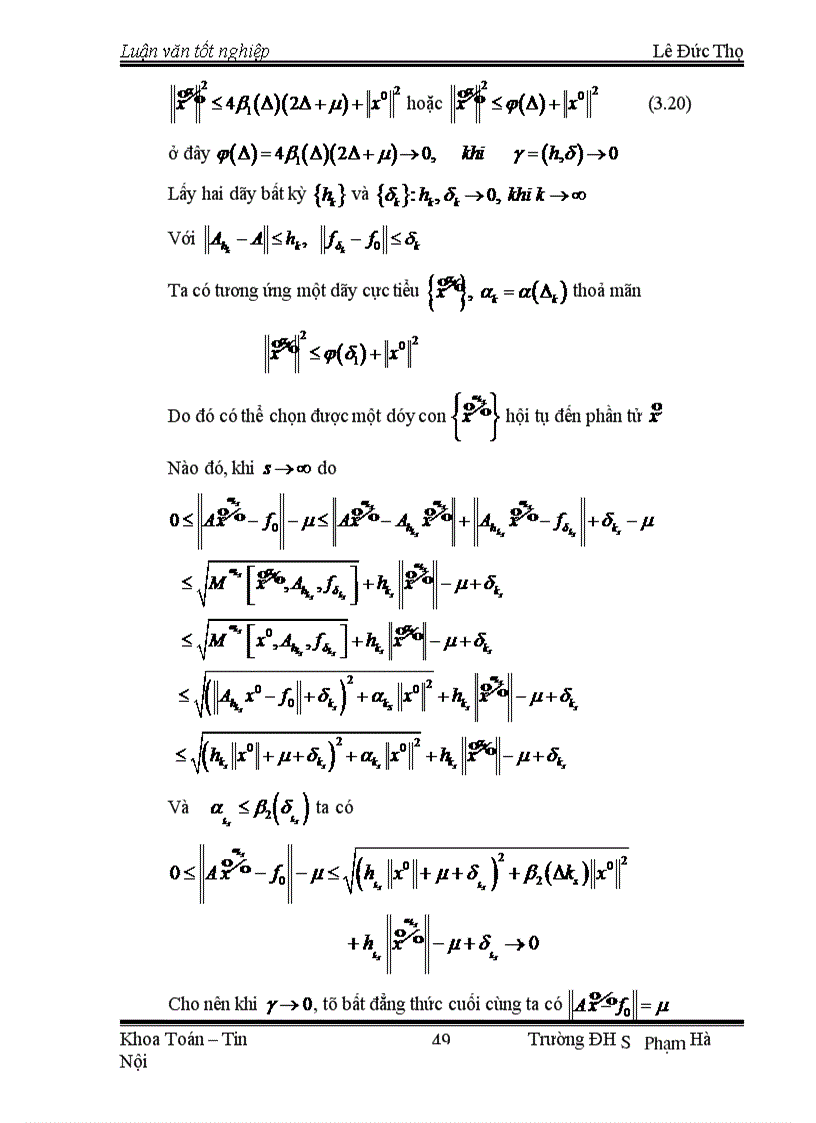 Luận văn tốt nghiệp Lê Đức Thọ
‖x^%‖² ≤ 4β₁(Δ)(2Δ + μ) + ‖x⁰‖² hoặc ‖x^%‖² ≤ φ(Δ) + ‖x⁰‖² (3.20)
ở đây φ(Δ) = 4β₁(Δ)(2Δ + μ) → 0, khi γ = (h,δ) → 0
Lấy hai dãy bất kỳ {hₖ} và {δₖ}: hₖ, δₖ → 0, khi k → ∞
Với ‖A_{hₖ} − A‖ ≤ hₖ, ‖f_{δₖ} − f₀‖ ≤ δₖ
Ta có tương ứng một dãy cực tiểu {x^%}, αₖ = α(Δₖ) thoả mãn
‖x^%‖² ≤ φ(δ₁) + ‖x⁰‖²
Do đó có thể chọn được một dóy con {x^%} hội tụ đến phần tử x
Nào đó, khi s → ∞ do
0 ≤ ‖Ax^% − f₀‖ − μ ≤ ‖Ax^% − A_{h_{kₛ}} x^%‖ + ‖A_{h_{kₛ}} x^% − f_{δ_{kₛ}}‖ + δ_{kₛ} − μ
≤ √(M^{α_{kₛ}}[x^%, A_{h_{kₛ}}, f_{δ_{kₛ}}]) + h_{kₛ}‖x^%‖ − μ + δ_{kₛ}
≤ √(M^{α_{kₛ}}[x⁰, A_{h_{kₛ}}, f_{δ_{kₛ}}]) + h_{kₛ}‖x^%‖ − μ + δ_{kₛ}
≤ √((‖A_{h_{kₛ}} x⁰ − f₀‖ + δ_{kₛ})² + α_{kₛ}‖x⁰‖²) + h_{kₛ}‖x^%‖ − μ + δ_{kₛ}
≤ √((h_{kₛ}‖x⁰‖ + μ + δ_{kₛ})² + α_{kₛ}‖x⁰‖²) + h_{kₛ}‖x^%‖ − μ + δ_{kₛ}
Và α_{kₛ} ≤ β₂(δ_{kₛ}) ta có
0 ≤ ‖Ax^% − f₀‖ − μ ≤ √((h_{kₛ}‖x⁰‖ + μ + δ_{kₛ})² + β₂(Δkₛ)‖x⁰‖²)
+ h_{kₛ}‖x^%‖ − μ + δ_{kₛ} → 0
Cho nên khi γ → 0, tõ bất đẳng thức cuối cùng ta có ‖Ax − f₀‖ = μ
Khoa Toán – Tin 49 Trường ĐH S Phạm Hà
Nội